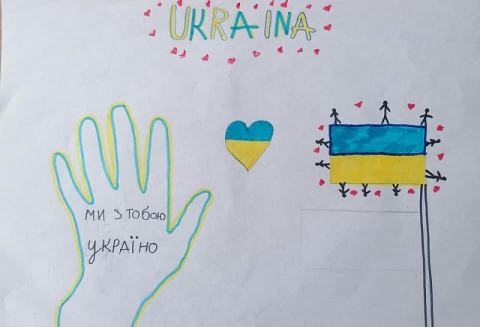 UKRAINA
МИ З ТОБОЮ
УКРАЇНО